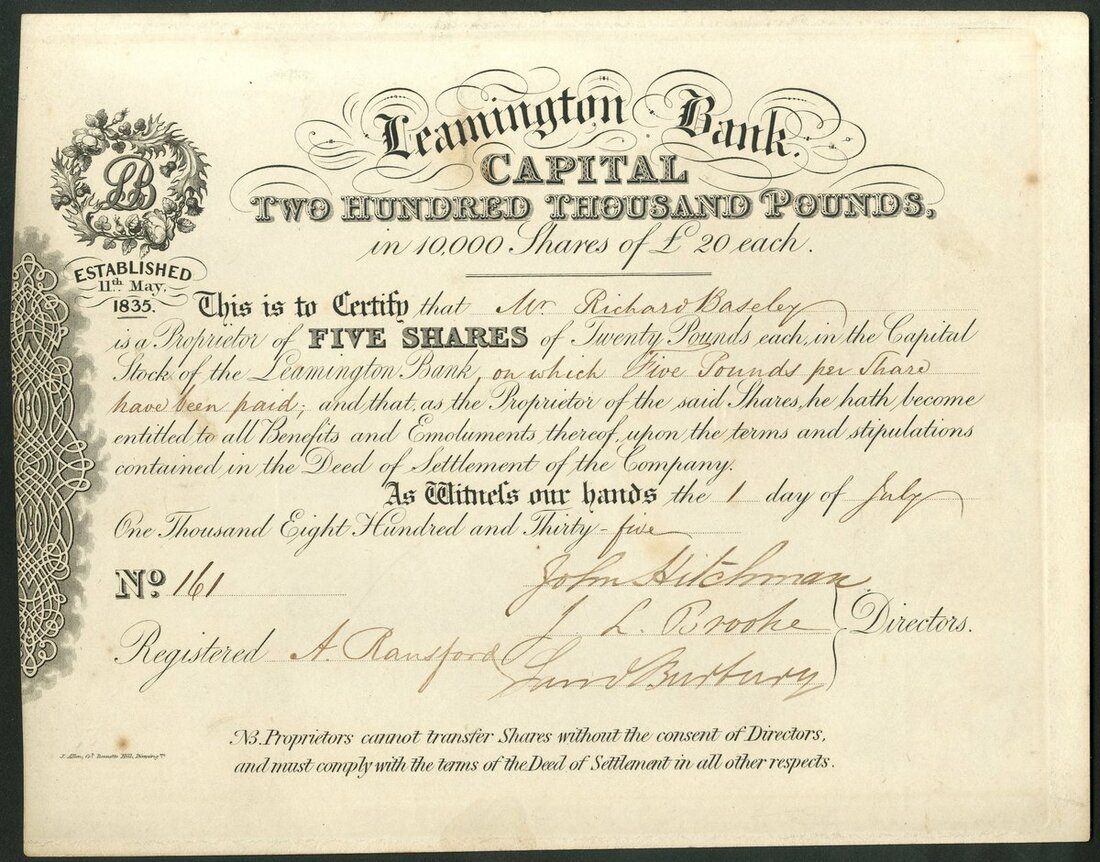 Leamington Bank.
CAPITAL
TWO HUNDRED THOUSAND POUNDS,
in 10,000 Shares of £ 20 each.
LB
ESTABLISHED
11th May,
1835.
This is to Certify that Mr Richard Baseley
is a Proprietor of FIVE SHARES of Twenty Pounds each, in the Capital
Stock of the Leamington Bank, on which Five Pounds per Share
have been paid; and that, as the Proprietor of the said Shares, he hath become
entitled to all Benefits and Emoluments thereof, upon the terms and stipulations
contained in the Deed of Settlement of the Company.
As Witneſs our hands the 1 day of July
One Thousand Eight Hundred and Thirty-five
No. 161
John Hitchman
J. L. Brooke
Directors.
Registered A. Ransford
Burbury
NB. Proprietors cannot transfer Shares without the consent of Directors,
and must comply with the terms of the Deed of Settlement in all other respects.
J. Allen, Bennetts Hill,